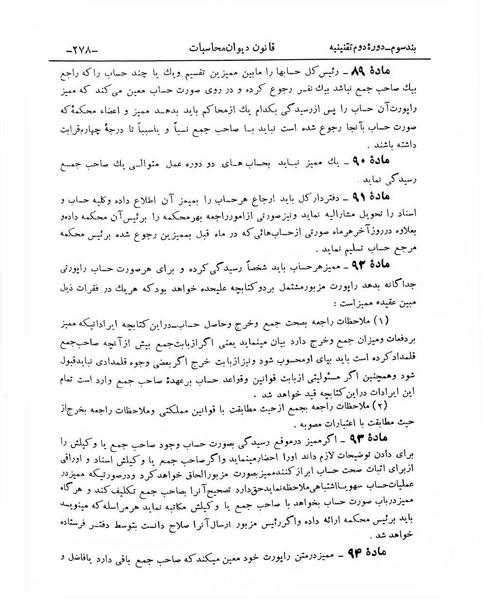 بندسوم_دورهٔ دوم تقنینیه
قانون دیوان محاسبات
-۲۷۸-
مادهٔ ۸۹ _ رئیس کل حسابها را مابین ممیزین تقسیم ویك یا چند حساب را که راجع
بیك صاحب جمع نباشد بیك نفر رجوع کرده و در روی صورت حساب معین می کند که ممیز
راپورت آن حساب را پس از رسیدگی بکدام یك از محاکم باید بدهد ممیز و اعضاء محکمهٔ که
صورت حساب بآنجا رجوع شده است نباید با صاحب جمع نسباً و یاسبباً تا درجهٔ چهارم قرابت
داشته باشند .
مادهٔ ۹۰ _ یك ممیز نباید بحساب های دو دوره عمل متوالی یك صاحب جمع
رسیدگی نماید .
مادهٔ ۹۱ _ دفتردار کل باید ارجاع هر حساب را بممیز آن اطلاع داده وکلیه حساب و
اسناد را تحویل مشارالیه نماید و نیز صورتی از امور راجعه بهر محکمه را برئیس آن محکمه داده و
بعلاوه در روز آخر هر ماه صورتی از حساب هائی که در ماه قبل بممیزین رجوع شده برئیس محکمه
مرجع حساب تسلیم نماید .
مادهٔ ۹۲ _ ممیز هر حساب باید شخصاً رسیدگی کرده و برای هر صورت حساب راپورتی
جداگانه بدهد راپورت مزبور مشتمل بر دو کتابچه علیحده خواهد بود که هر یك در فقرات ذیل
مبین عقیده ممیز است :
(۱) ملاحظات راجعه بصحت جمع و خرج و حاصل حساب_در این کتابچه ایراداتیکه ممیز
بر دفعات و میزان جمع و خرج دارد بیان مینماید یعنی اگر از بابت جمع بیش از آنچه صاحب جمع
قلمداد کرده است باید بپای او محسوب شود و نیز از بابت خرج اگر بعضی وجوه قلمدادی نباید قبول
شود وهمچنین اگر مسئولیتی از بابت قوانین وقواعد حساب بر عهدهٔ صاحب جمع وارد است تمام
این ایرادات در این کتابچه قید خواهد شد .
(۲) ملاحظات راجعه بجمع از حیث مطابقت با قوانین مملکتی و ملاحظات راجعه بخرج از
حیث مطابقت با اعتبارات مصوبه .
مادهٔ ۹۳ _ اگر ممیز در موقع رسیدگی بصورت حساب وجود صاحب جمع یا وکیلش را
برای دادن توضیحات لازم داند اورا احضار مینماید و اگر صاحب جمع یا وکیلش اسناد و اوراقی
از برای اثبات صحت حساب ابراز کنند ممیز بصورت مزبور الحاق خواهد کرد و در صورتیکه ممیز در
عملیات حساب سهو یا اشتباهی ملاحظه نماید حق دارد تصحیح آنرا بصاحب جمع تکلیف کند و هرگاه
ممیز در باب صورت حساب بخواهد با صاحب جمع یا وکیلش مکاتبه نماید هر مراسله که مینویسد
باید برئیس محکمه ارائه داده و اگر رئیس مزبور ارسال آنرا صلاح دانست بتوسط دفتر فرستاده
خواهد شد .
مادهٔ ۹۴ _ ممیز در متن راپورت خود معین میکند که صاحب جمع باقی دارد یا فاضل و